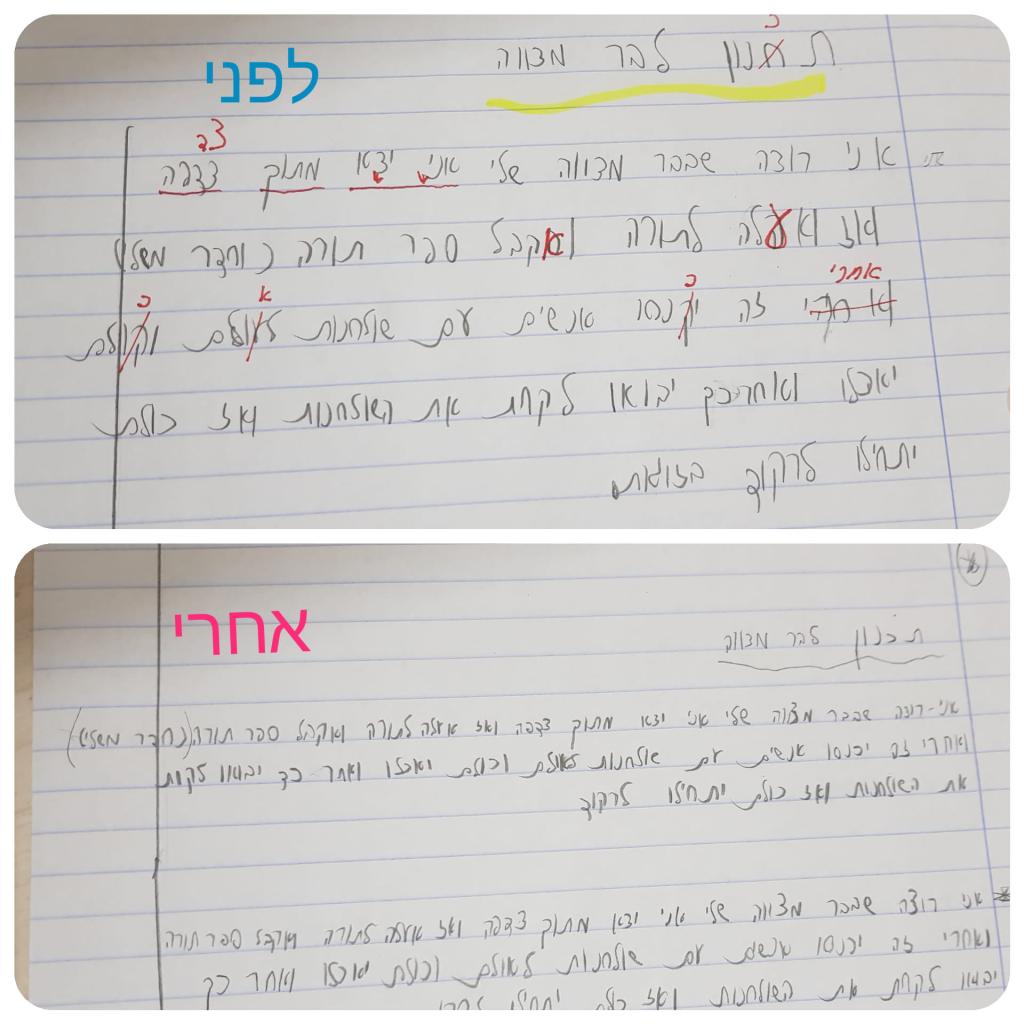 לפני
תכנון לבר מצווה
צד
אני רוצה שבבר מצווה שלי אני יצא מתוך צדפה
ואז ואעלה לתורה ואקבל ספר תורה (וחדר משלי)
אחרי
זה יקנסו אנשים עם שולחנות לעולם וקולם
כ
א
כ
יאכלו ואחר כך יבואו לקחת את השולחנות ואז כולם
יתחילו לרקוד בזוגות
אחרי
תכנון לבר מצווה
אני רוצה שבבר מצווה שלי אני יצא מתוך צדפה ואז אעלה לתורה ואקבל ספר תורה (וחדר משלי)
ואחרי זה יכנסו אנשים עם שולחנות לאולם וכולם יאכלו ואחר כך יבואו לקחת
את השולחנות ואז כולם יתחילו לרקוד
אני רוצה שבבר מצווה שלי אני יצא מתוך צדפה ואז אעלה לתורה ואקבל ספר תורה
ואחרי זה יכנסו אנשים עם שולחנות לאולם וכולם יאכלו ואחר כך
יבואו לקחת את השולחנות ואז כולם יתחילו לרקוד